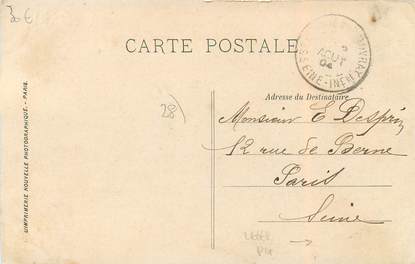 30€
CARTE POSTALE
OUVRAY
AOUT
04
SEINE-INFRE
Adresse du Destinataire
Monsieur E Desprez
12 rue de Berne
Paris
Seine
28)
L'IMPRIMERIE NOUVELLE PHOTOGRAPHIQUE. - PARIS.